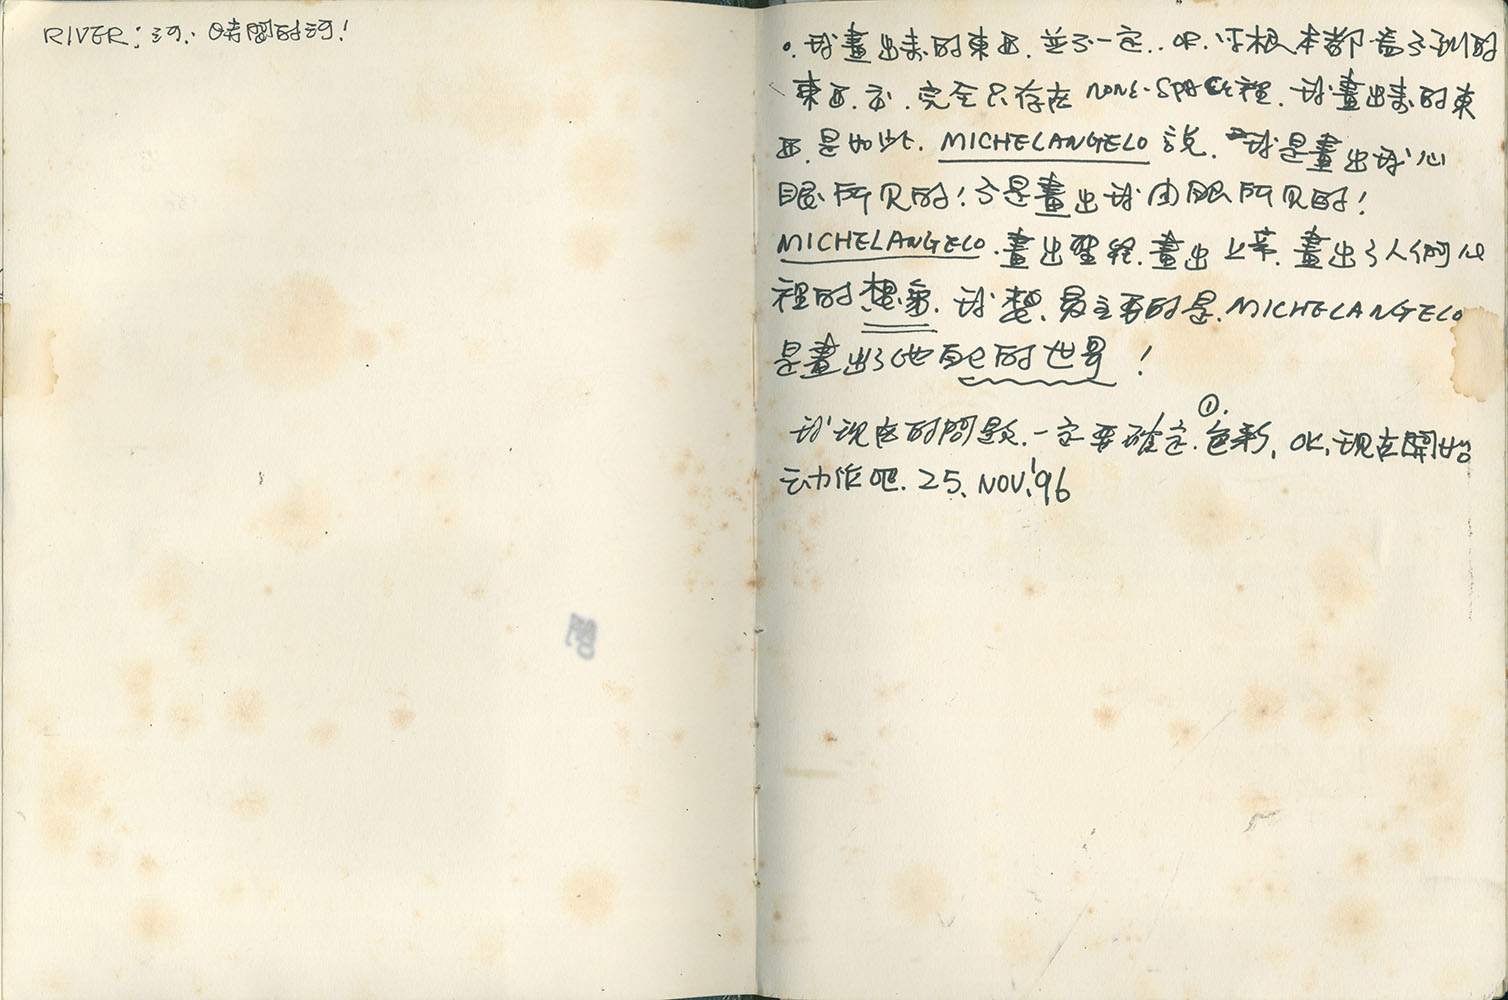 RIVER: 河. 時間的河!
。我畫出來的東西. 並不一定.. OR. 你根本都看不到的
東西. 求. 完全只存在 NONE-SPACE裡. 我畫出來的東
西. 是如此. MICHELANGELO 說. "我是畫出我心
眼所見的! 不是畫出我肉眼所見的!
MICHELANGELO. 畫出聖經. 畫出上帝. 畫出了人們心
裡的想象. 我想. 最主要的是. MICHELANGELO
是畫出了他自己的世界!
①.
我現在的問題. 一定要確定. 色彩, OK, 現在開始
动作吧. 25. NOV.'96